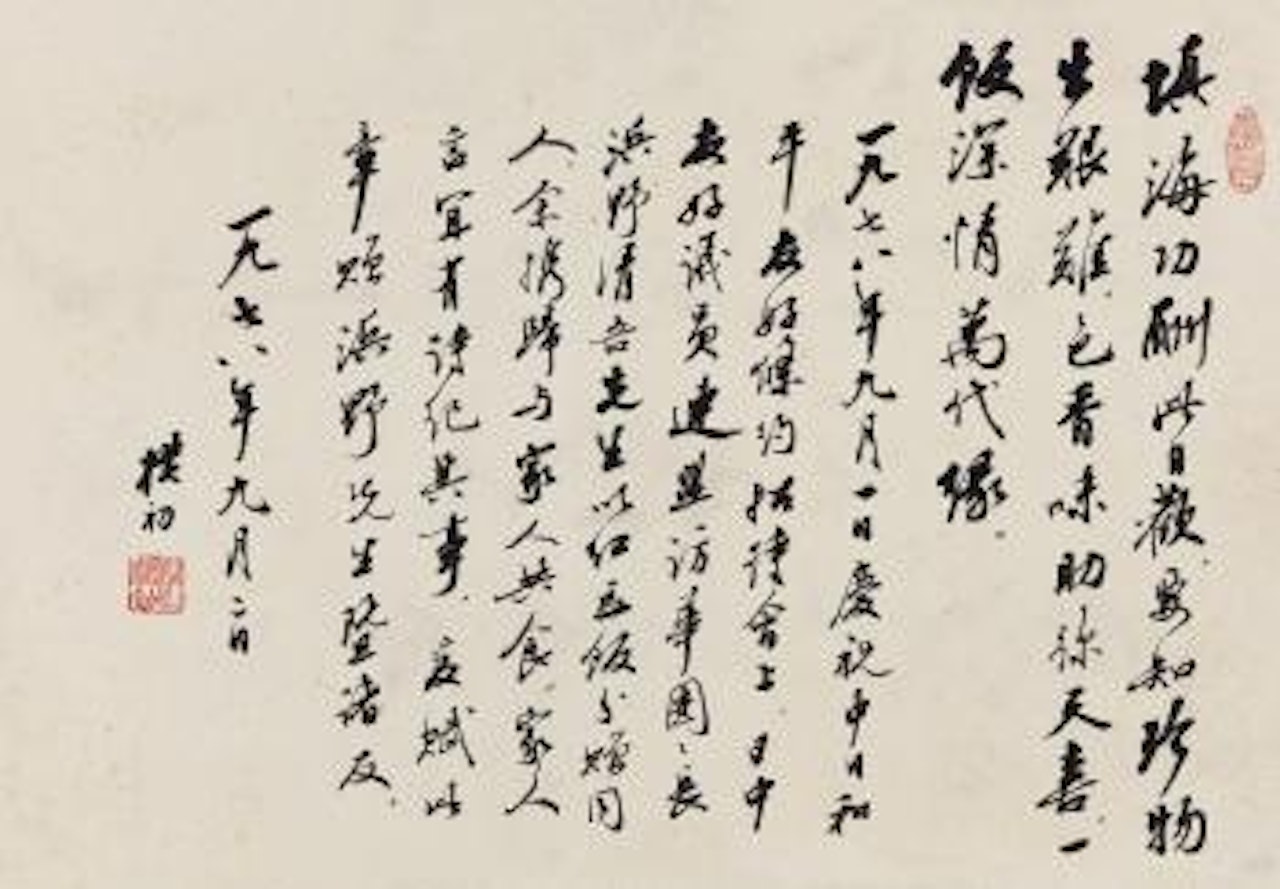 填海功酬此日歡.要知珍物
生艱難.色香味助弥天喜.一
飯深情萬代緣.
一九七八年九月一日慶祝中日和
平友好條約招待會上.日中
友好議員連盟訪華團〻長
浜野清吾先生以红豆飯分贈同
人.余携歸与家人共食.家人
言宜有詩紀其事.爰賦此
章贈浜野先生暨諸友.
一九七八年九月二日
樸初